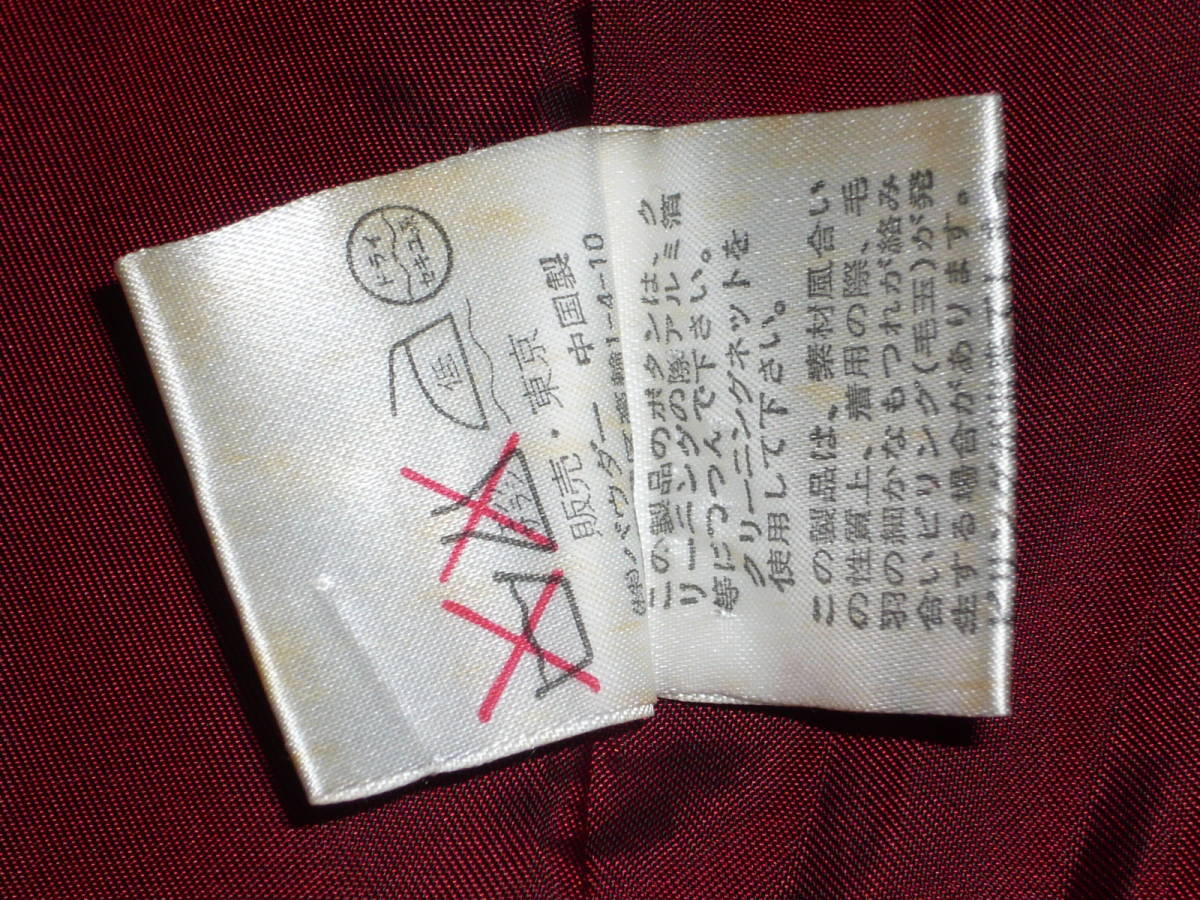 エンソ
サラシ
低
ドライ
セキユ系
販売・東京 中国製
(株)パウダー
1-4-10
この製品のボタンは、ク
リーニングの際アルミ箔
等につつんで下さい。
クリーニングネットを
使用して下さい。
この製品は、素材風合い
の性質上、着用の際、毛
羽の細かなもつれが絡み
合いピリング(毛玉)が発
生する場合があります。